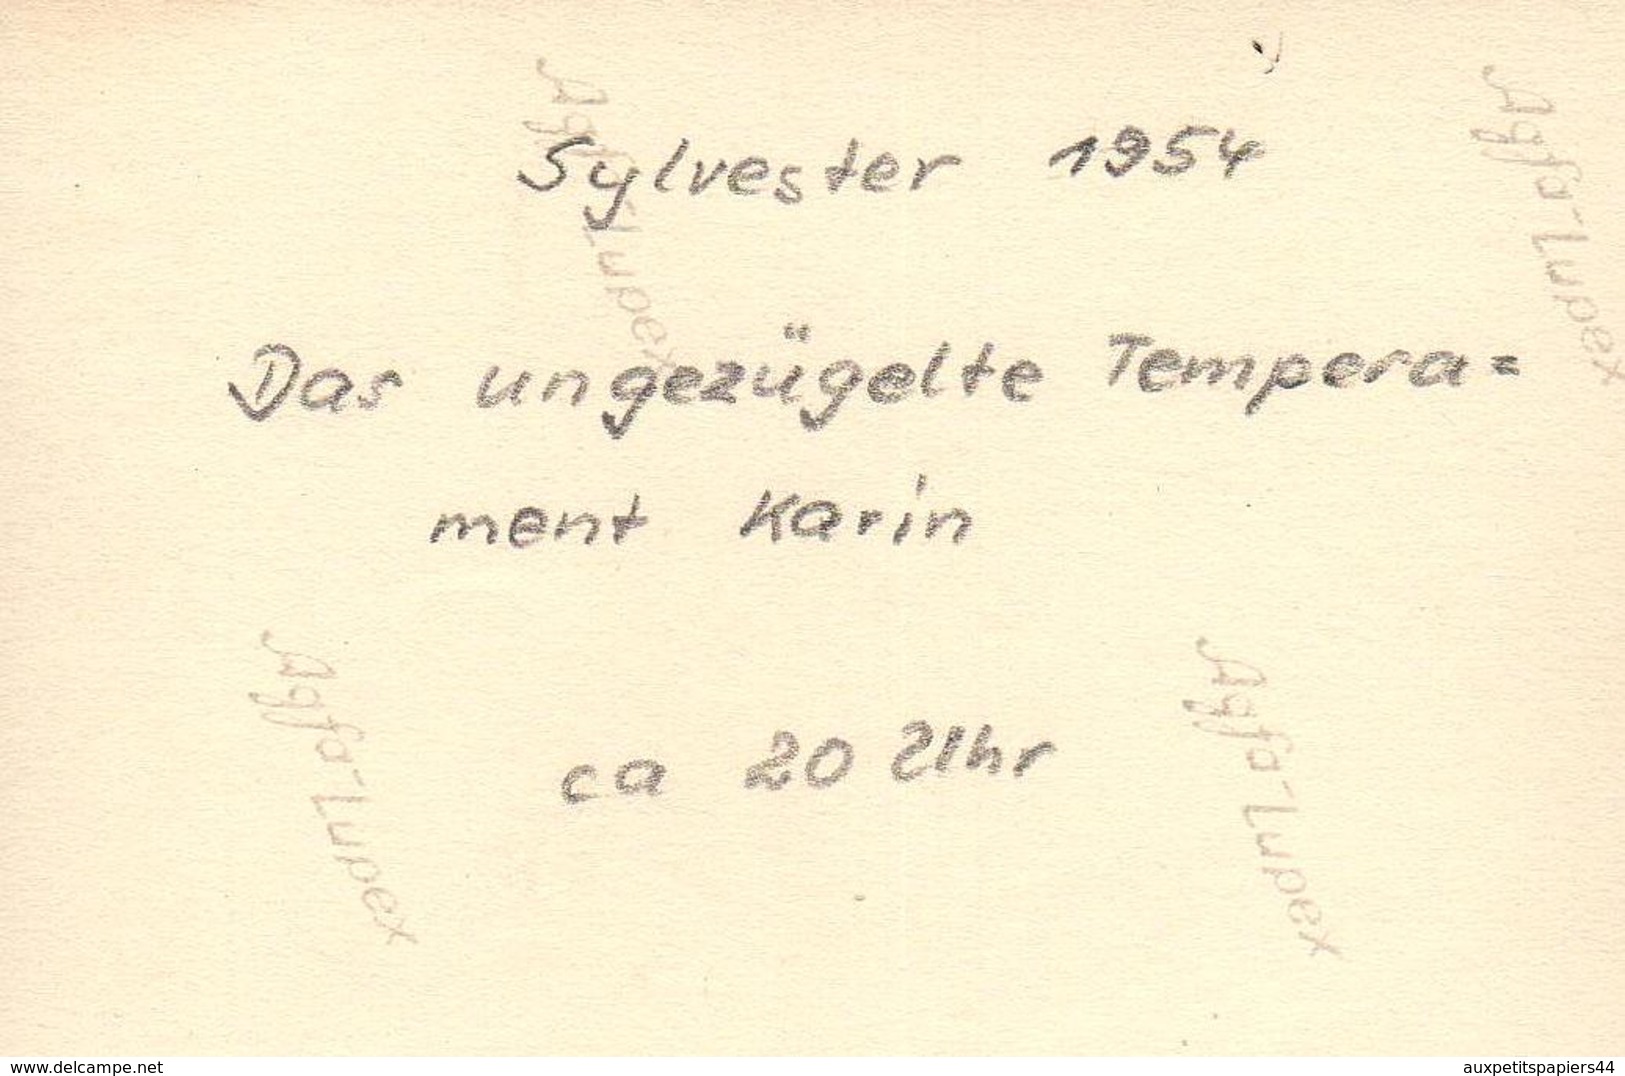 Sylvester 1954
Das ungezügelte Tempera=
ment Karin
ca 20 Uhr
Agfa-Lupex
Agfa-Lupex
Agfa-Lupex
Agfa-Lupex
www.delcampe.net
auxpetitspapiers44